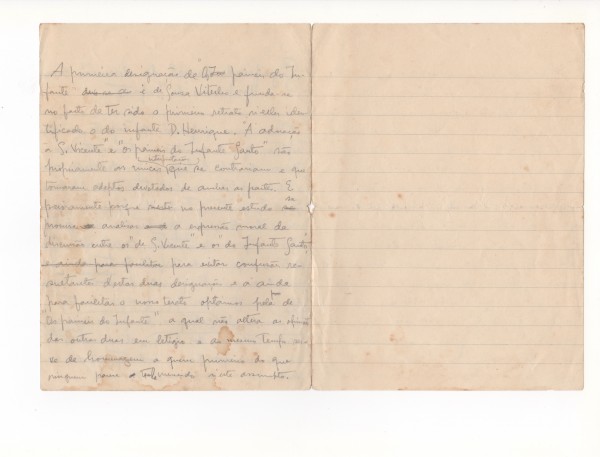 A primeira designação de paineis do In-
fante é de Souza Viterbo e funda-se
no facto de ter sido o primeiro retrato a ser iden-
tificado o do infante D. Henrique. "A adoração
a S. Vicente" e "os paineis do Infante Santo" são
propriamente as que se contrariam e que
tomaram adeptos de ambas as partes. E
porque no presente estudo se
analisa a expressão moral da
discussão entre os "de S. Vicente" e os "do Infante Santo"
e ainda para facilitar para evitar confusão
destas duas designações e a ainda
para facilitar o nosso texto optamos pela de
paineis do Infante" a qual não altera as
das outras duas em litigio e ao mesmo tempo
de homenagem a quem primeiro do que
ninguem n'este assumpto.